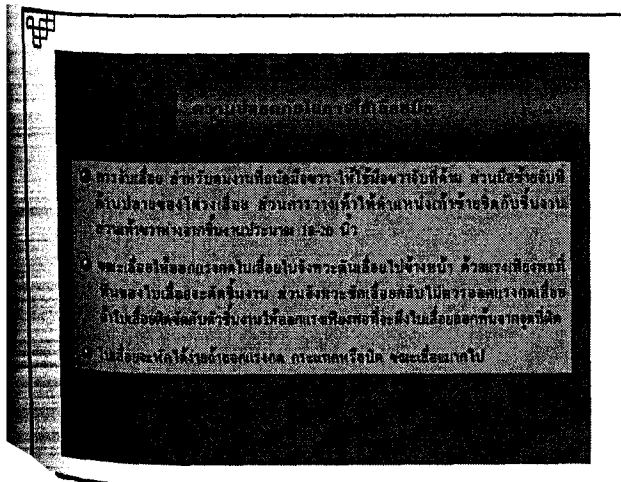 ความปลอดภัยในการใช้เลื่อยมือ
การจับเลื่อย สำหรับคนงานที่ถนัดมือขวา ให้ใช้มือขวาจับที่ด้าม ส่วนมือซ้ายจับที่
ด้านปลายของโครงเลื่อย ส่วนการวางเท้าให้ตำแหน่งเท้าซ้ายชิดกับชิ้นงาน
ส่วนเท้าขวาห่างจากชิ้นงานประมาณ 18-20 นิ้ว
ขณะเลื่อยให้ออกแรงกดใบเลื่อยในจังหวะดันเลื่อยไปข้างหน้า ด้วยแรงเพียงพอที่
ฟันของใบเลื่อยจะตัดชิ้นงาน ส่วนจังหวะชักเลื่อยกลับไม่ควรออกแรงกดเลื่อย
ถ้าใบเลื่อยติดขัดกับตัวชิ้นงานให้ออกแรงเพียงพอที่จะดึงใบเลื่อยออกพ้นจากจุดที่ติด
ใบเลื่อยจะหักได้ง่ายถ้าออกแรงกด กระแทกหรือบิด ขณะเลื่อยมากไป